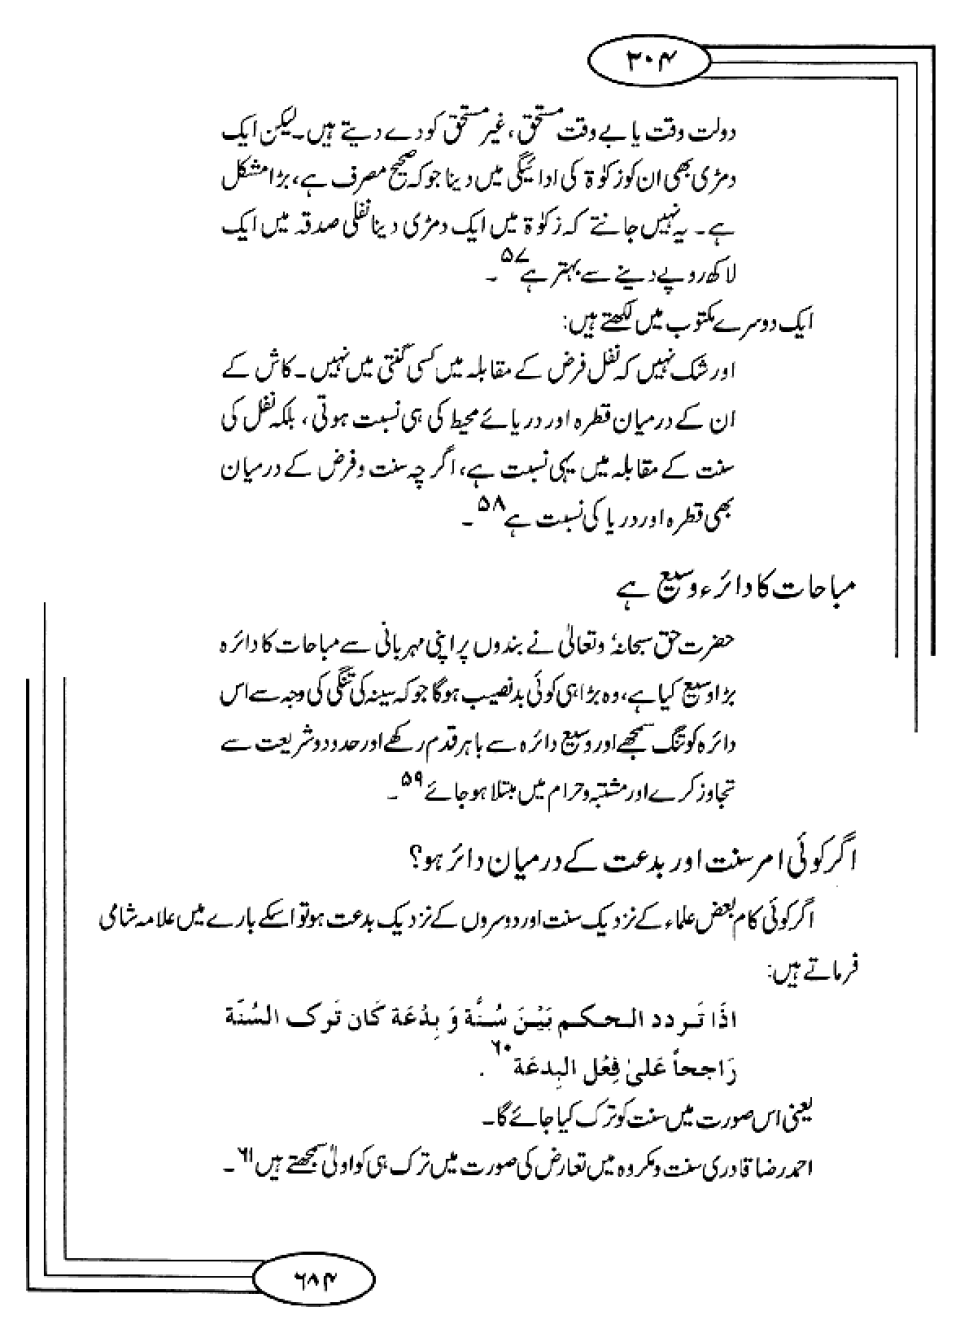 ۳۰۴
دولت وقت یا بے وقت مستحق، غیر مستحق کو دے دیتے ہیں۔ لیکن ایک
دمڑی بھی ان کو زکوٰۃ کی ادائیگی میں دینا جو کہ صحیح مصرف ہے، بڑا مشکل
ہے۔ یہ نہیں جانتے کہ زکوٰۃ میں ایک دمڑی دینا نفلی صدقہ میں ایک
لاکھ روپے دینے سے بہتر ہے۵۷۔
ایک دوسرے مکتوب میں لکھتے ہیں:
اور شک نہیں کہ نفل فرض کے مقابلہ میں کسی گنتی میں نہیں۔ کاش کے
ان کے درمیان قطرہ اور دریائے محیط کی ہی نسبت ہوتی، بلکہ نفل کی
سنت کے مقابلہ میں یہی نسبت ہے، اگرچہ سنت و فرض کے درمیان
بھی قطرہ اور دریا کی نسبت ہے۵۸۔
مباحات کا دائرہ وسیع ہے
حضرت حق سبحانہٗ وتعالیٰ نے بندوں پر اپنی مہربانی سے مباحات کا دائرہ
بڑا وسیع کیا ہے، وہ بڑا ہی کوئی بدنصیب ہوگا جو کہ سینہ کی تنگی کی وجہ سے اس
دائرہ کو تنگ سمجھے اور وسیع دائرہ سے باہر قدم رکھے اور حدود شریعت سے
تجاوز کرے اور مشتبہ و حرام میں مبتلا ہو جائے۵۹۔
اگر کوئی امر سنت اور بدعت کے درمیان دائر ہو؟
اگر کوئی کام بعض علماء کے نزدیک سنت اور دوسروں کے نزدیک بدعت ہو تو اسکے بارے میں علامہ شامی
فرماتے ہیں:
اذَا تَردد الحکم بَیْنَ سُنَّة وَ بِدْعَة کَان تَرک السُنَّة
رَاجحاً عَلیٰ فِعْل البِدعَة۶۰.
یعنی اس صورت میں سنت کو ترک کیا جائے گا۔
احمد رضا قادری سنت و مکروہ میں تعارض کی صورت میں ترک ہی کو اولیٰ سمجھتے ہیں۶۱۔
۶۸۴